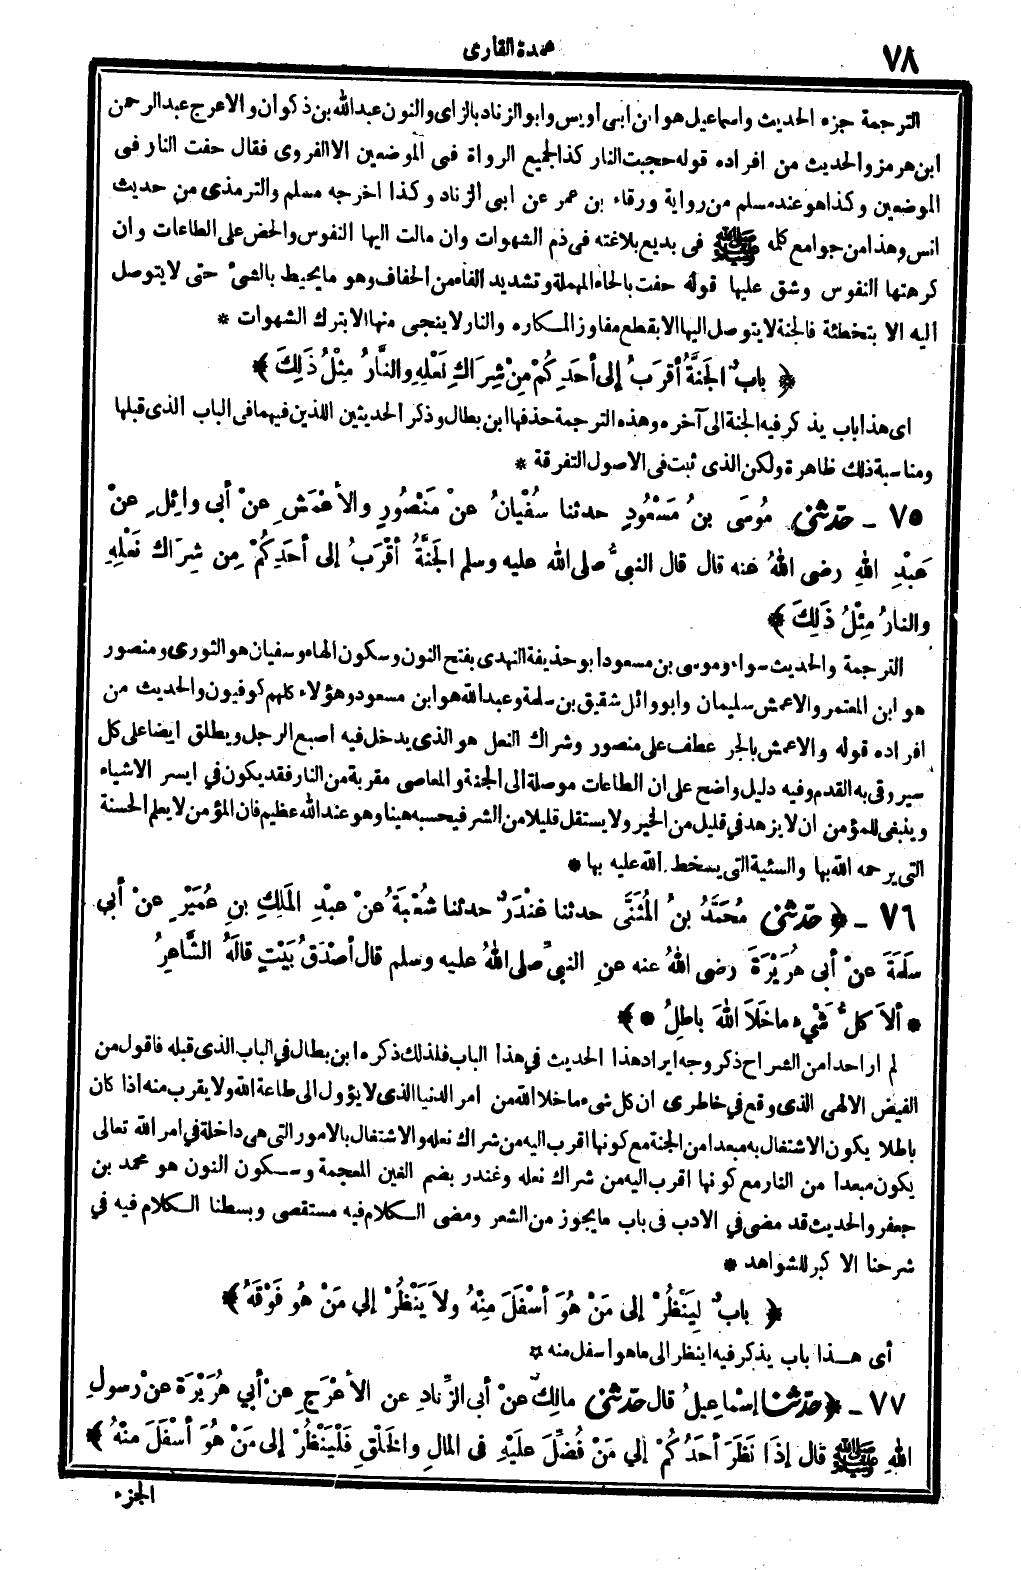 ٧٨
عمدة القارى
الترجمة جزء الحديث واسماعيل هو ابن ابى أويس وابو الزناد بالزاى والنون عبد الله بن ذكوان والاعرج عبد الرحمن
ابن هرمز والحديث من افراده قوله حجبت النار كذا لجميع الرواة فى الموضعين الا الفروى فقال حفت النار فى
الموضعين وكذا هو عند مسلم من رواية ورقاء بن عمر عن ابى الزناد وكذا اخرجه مسلم والترمذى من حديث
انس وهذا من جوامع كلمه ﷺ فى بديع بلاغته فى ذم الشهوات وان مالت اليها النفوس والحض على الطاعات وان
كرهتها النفوس وشق عليها قوله حفت بالحاء المهملة وتشديد الفاء من الحفاف وهو ما يحيط بالشىء حتى لا يتوصل
اليه الا بتخطئة فالجنة لا يتوصل اليها الا بقطع مفاوز المكاره والنار لا ينجى منها الا بترك الشهوات *
﴿ بابٌ الجَنَّةُ أقْرَبُ إلى أحَدِكُمْ مِنْ شِرَاكِ نَعْلِهِ والنَّارُ مِثْلُ ذَلِكَ ﴾
اى هذا باب يذكر فيه الجنة الى آخره وهذه الترجمة حذفها ابن بطال وذكر الحديثين اللذين فيهما فى الباب الذى قبلها
ومناسبة ذلك ظاهرة ولكن الذى ثبت فى الاصول التفرقة *
٧٥ - حدّثنى مُوسَى بنُ مَسْعُودٍ حدثنا سُفْيانُ عنْ مَنْصُورٍ والأعْمَشِ عنْ أبى وائِلٍ عنْ
عَبْدِ اللهِ رضى اللهُ عنه قال قال النبىُّ صلى الله عليه وسلم الجَنَّةُ أقْرَبُ إلى أحَدِكُمْ مِن شِرَاكِ نَعْلِهِ
والنارُ مِثْلُ ذَلِكَ ﴾
الترجمة والحديث سواء وموسى بن مسعود ابو حذيفة النهدى بفتح النون وسكون الهاء وسفيان هو الثورى ومنصور
هو ابن المعتمر والاعمش سليمان وابو وائل شقيق بن سلمة وعبد الله هو ابن مسعود وهؤلاء كلهم كوفيون والحديث من
افراده قوله والاعمش بالجر عطف على منصور وشراك النعل هو الذى يدخل فيه اصبع الرجل ويطلق ايضا على كل
سير وقى به القدم وفيه دليل واضح على ان الطاعات موصلة الى الجنة والمعاصى مقربة من النار فقد يكون في ايسر الاشياء
وينبغى للمؤمن ان لا يزهد في قليل من الخير ولا يستقل قليلا من الشر فيحسبه هينا وهو عند الله عظيم فان المؤمن لا يعلم الحسنة
التى يرحمه الله بها والسئية التى يسخط الله عليه بها *
٧٦ - ﴿ حدّثنى مُحَمَّدُ بنُ المُثَنَّى حدثنا غنْدَرٌ حدثنا شُعْبَةُ عنْ عبْدِ المَلِكِ بنِ عُمَيْرٍ عنْ أبي
سلَمَةَ عنْ أبى هُرَيْرَةَ رضى اللهُ عنه عنِ النبىِّ صلى اللهُ عليه وسلم قال أصْدَقُ بَيْتٍ قالَهُ الشَّاعِرُ
* ألاَ كلُّ شَىْءٍ ما خَلاَ اللهَ باطِلُ * ﴾
لم ار احدا من الشراح ذكر وجه ايراد هذا الحديث في هذا الباب فلذلك ذكره ابن بطال في الباب الذى قبله فاقول من
الفيض الالهى الذى وقع في خاطرى ان كل شىء ما خلا الله من امر الدنيا الذى لا يؤول الى طاعة الله ولا يقرب منه اذا كان
باطلا يكون الاشتغال به مبعدا من الجنة مع كونها اقرب اليه من شراك نعله والاشتغال بالامور التى هى داخلة في امر الله تعالى
يكون مبعدا من النار مع كونها اقرب اليه من شراك نعله وغندر بضم الغين المعجمة وسكون النون هو محمد بن
جعفر والحديث قد مضى في الادب فى باب ما يجوز من الشعر ومضى الكلام فيه مستقصى وبسطنا الكلام فيه في
شرحنا الاكبر للشواهد *
﴿ بابٌ لِيَنْظُرْ إلى مَنْ هُوَ أسْفَلَ مِنْهُ ولاَ يَنْظُرْ إلى مَنْ هُو فَوْقَهُ ﴾
أى هذا باب يذكر فيه لينظر الى ما هو أسفل منه *
٧٧ - ﴿ حدّثنا إسْماعِيلُ قال حدّثنى مالِكٌ عنْ أبى الزِّنادِ عن الأعْرَجِ عنْ أبي هُرَيْرَةَ عنْ رسولِ
اللهِ ﷺ قال إذَا نَظَرَ أحَدُكُمْ إلي مَنْ فُضِّلَ عَلَيْهِ فى المالِ والخَلْقِ فَلْيَنْظُرْ إلى مَنْ هُوَ أسْفَلَ مِنْهُ ﴾
الجزء